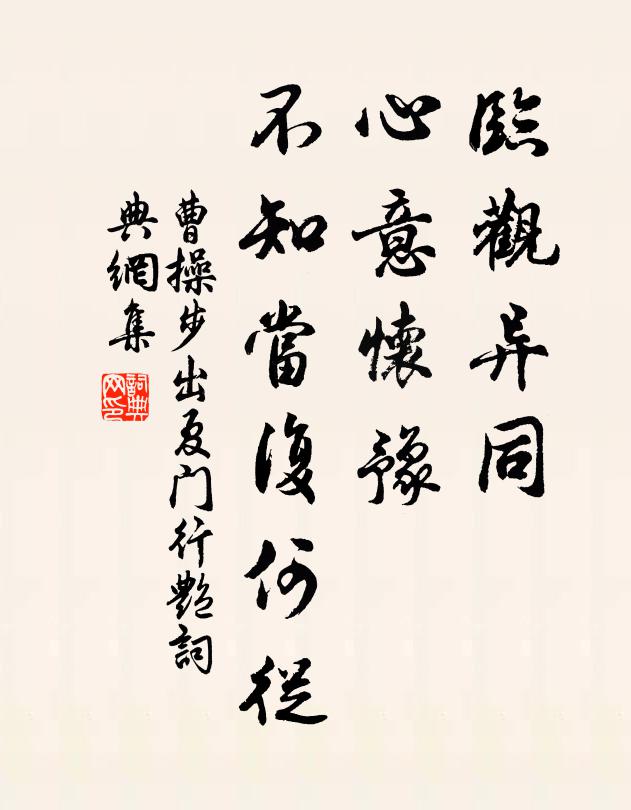 臨觀异同
心意懷豫
不知當復何從
曹操步出夏门行艷詞
典網集
詞典
网印